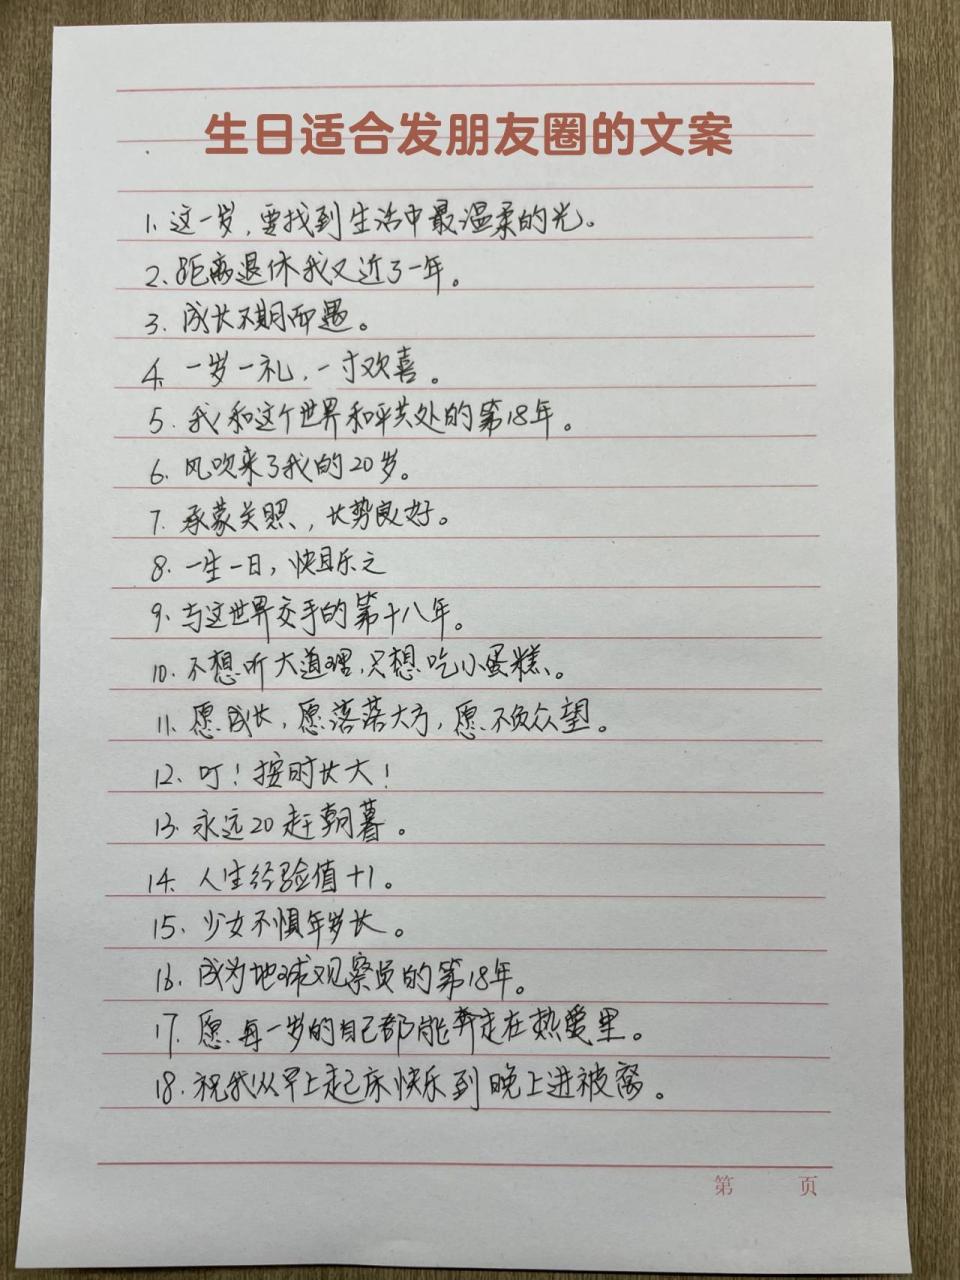 生日适合发朋友圈的文案
1. 这一岁,要找到生活中最温柔的光。
2、距离退休我又近了一年。
3. 成长不期而遇。
4. 一岁一礼,一寸欢喜。
5. 我和这个世界和平共处的第18年。
6. 风吹来了我的20岁。
7. 承蒙关照,长势良好。
8. 一生一日,快且乐之
9. 与这世界交手的第十八年。
10. 不想听大道理,只想吃小蛋糕。
11. 愿成长,愿落落大方,愿不负众望。
12、叮!按时长大!
13. 永远20赶朝暮。
14. 人生经验值+1。
15、少女不惧年岁长。
16. 成为地球观察员的第18年。
17. 愿每一岁的自己都能奔走在热爱里。
18. 祝我从早上起床快乐到晚上进被窝。
第 页